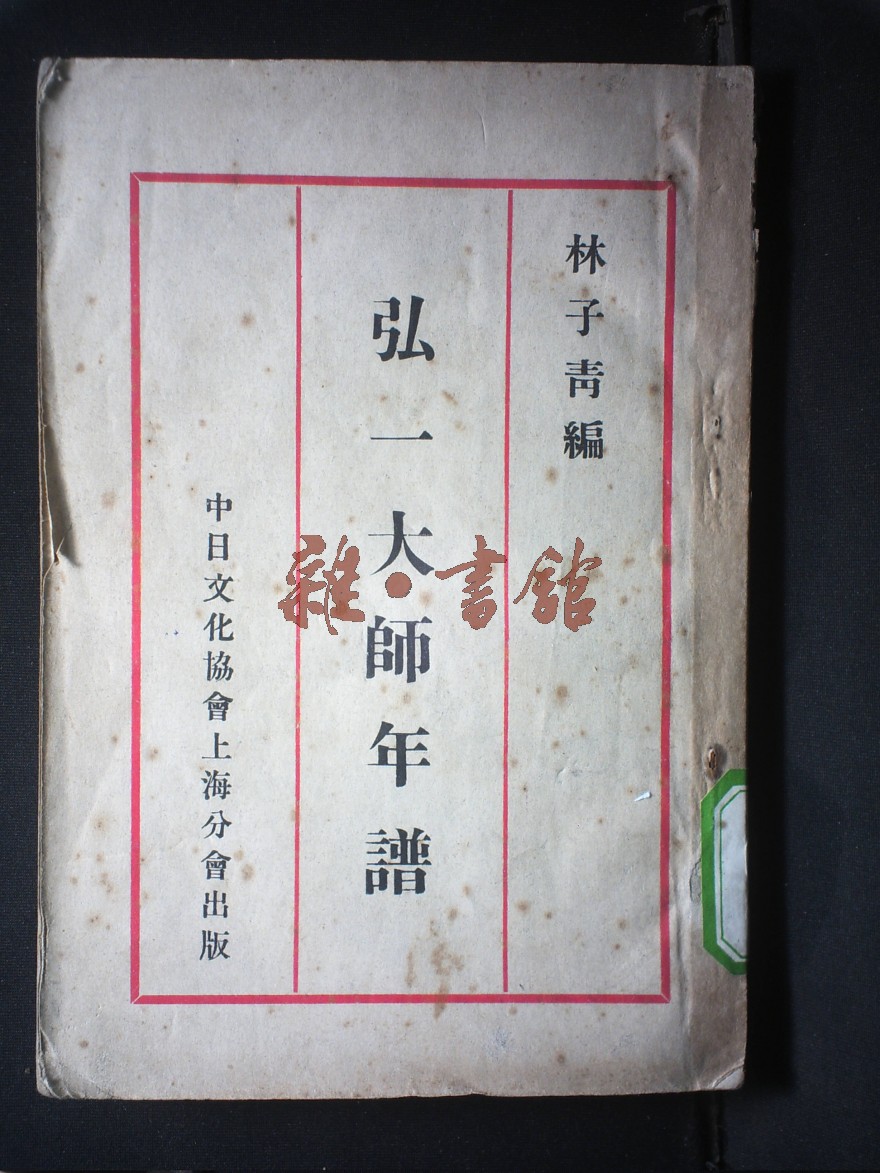 林子青編
弘一大師年譜
中日文化協會上海分會出版
雜·書舘